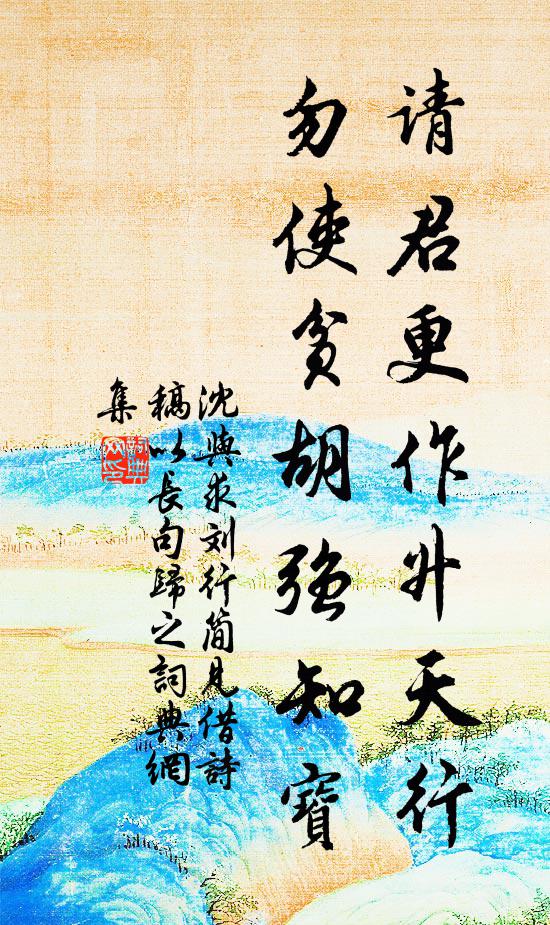 请君更作升天行
勿使贫胡强知寶
沈與求刘行简見借詩
稿以長句歸之詞典網
集